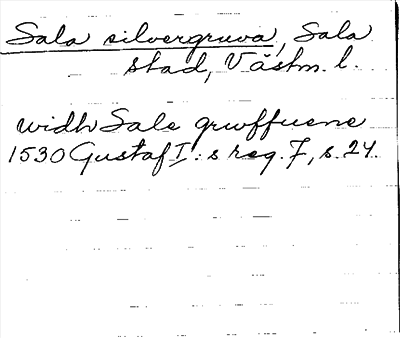 Sala silvergruva, Sala
stad, Västm. l.
widh Sale gruffuene
1530 Gustaf I:s reg. 7, s. 24.